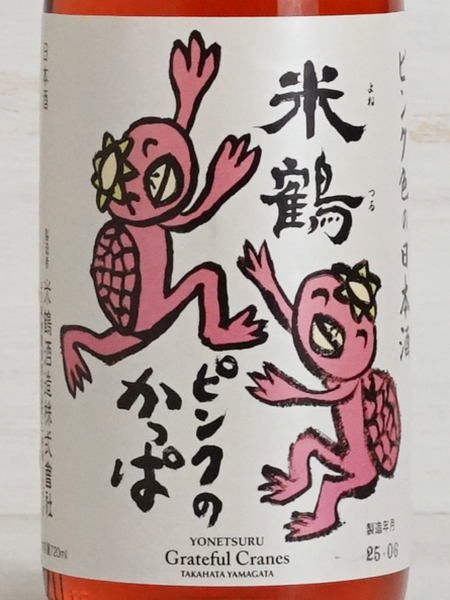 ピンク色の日本酒
米鶴
よね
つる
ピンクの
かっぱ
日本酒
製造者
米鶴酒造株式会社
720ml
製造年月
25.06
YONETSURU
Grateful Cranes
TAKAHATA YAMAGATA